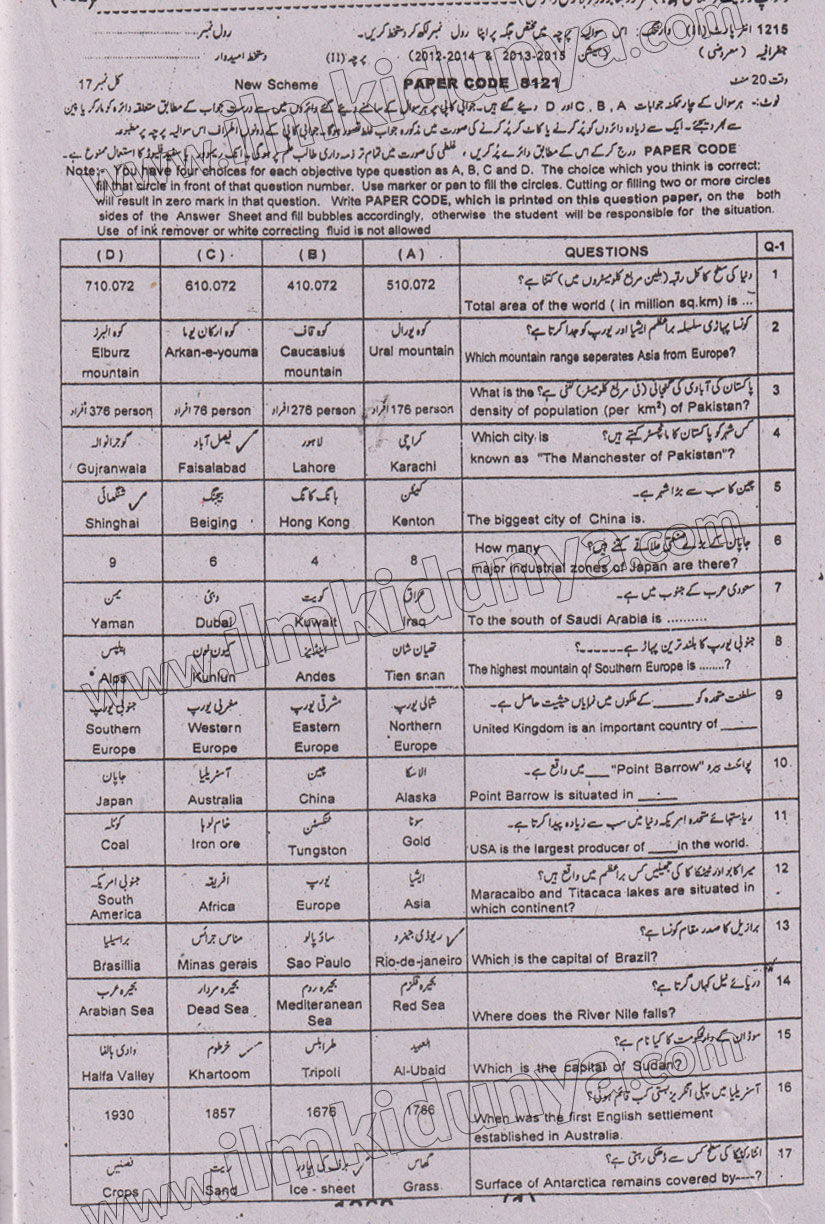 1215 انٹر پارٹ (II) وارننگ: اس سوالیہ پرچہ میں مختص جگہ پر اپنا رول نمبر لکھ کر دستخط کریں۔ رول نمبر
جغرافیہ (معروضی) (سیشن 2013-2015 & 2012-2014) پرچہ (II) دستخط امیدوار
وقت 20 منٹ PAPER CODE 8121 New Scheme کل نمبر 17
نوٹ:- ہر سوال کے چار ممکنہ جوابات A ,B ,C اور D دیئے گئے ہیں۔ جوابی کاپی پر ہر سوال کے سامنے دیئے گئے دائروں میں سے درست جواب کے مطابق متعلقہ دائرہ کو مارکر یا پین
سے بھر دیجئے۔ ایک سے زیادہ دائروں کو پُر کرنے یا کاٹ کر پُر کرنے کی صورت میں مذکورہ جواب غلط تصور ہوگا۔ جوابی کاپی کے دونوں اطراف اس سوالیہ پرچہ پر مطبوعہ
PAPER CODE درج کر کے اس کے مطابق دائرے پُر کریں، غلطی کی صورت میں تمام تر ذمہ داری طالب علم پر ہوگی۔ انک ریموور یا سفید فلیوڈ کا استعمال ممنوع ہے۔
Note:- You have four choices for each objective type question as A, B, C and D. The choice which you think is correct:
fill that circle in front of that question number. Use marker or pen to fill the circles. Cutting or filling two or more circles
will result in zero mark in that question. Write PAPER CODE, which is printed on this question paper, on the both
sides of the Answer Sheet and fill bubbles accordingly, otherwise the student will be responsible for the situation.
Use of ink remover or white correcting fluid is not allowed
(D) (C) (B) (A) QUESTIONS Q-1
710.072 610.072 410.072 510.072 دنیا کی سطح کا کل رقبہ (ملین مربع کلومیٹروں میں) کتنا ہے؟ 1
Total area of the world ( in million sq.km) is ...
کوہ البرز کوہ ارکان یوما کوہ قاف کوہ یورال کونسا پہاڑی سلسلہ براعظم ایشیا اور یورپ کو جدا کرتا ہے؟ 2
Elburz mountain Arkan-e-youma Caucasius mountain Ural mountain Which mountain range seperates Asia from Europe?
376 person افراد 76 person افراد 276 person افراد 176 person افراد پاکستان کی آبادی کی گنجانی (فی مربع کلومیٹر) کتنی ہے؟ What is the 3
density of population (per km²) of Pakistan?
گوجرانوالہ فیصل آباد لاہور کراچی کس شہر کو پاکستان کا مانچسٹر کہتے ہیں؟ Which city is 4
Gujranwala Faisalabad Lahore Karachi known as "The Manchester of Pakistan"?
شنگھائی بیجنگ ہانگ کانگ کینٹن چین کا سب سے بڑا شہر ہے۔ 5
Shinghai Beiging Hong Kong Kenton The biggest city of China is.
9 6 4 8 جاپان کے بڑے صنعتی علاقے کتنے ہیں؟ How many 6
major industrial zones of Japan are there?
یمن دبئی کویت عراق سعودی عرب کے جنوب میں ہے۔ 7
Yaman Dubai Kuwait Iraq To the south of Saudi Arabia is ..........
ایلپس کیون لون اینڈیز تھیان شان جنوبی یورپ کا بلند ترین پہاڑ ہے------؟ 8
Alps Kunlun Andes Tien snan The highest mountain of Southern Europe is ........?
جنوبی یورپ مغربی یورپ مشرقی یورپ شمالی یورپ سلطنت متحدہ کو _____ کے ملکوں میں نمایاں حیثیت حاصل ہے۔ 9
Southern Europe Western Europe Eastern Europe Northern Europe United Kingdom is an important country of _____
جاپان آسٹریلیا چین الاسکا پوائنٹ بیرو "Point Barrow" ___ میں واقع ہے۔ 10
Japan Australia China Alaska Point Barrow is situated in _____
کوئلہ خام لوہا ٹنگسٹن سونا ریاستہائے متحدہ امریکہ دنیا میں سب سے زیادہ پیدا کرتا ہے۔ 11
Coal Iron ore Tungston Gold USA is the largest producer of ____in the world.
جنوبی امریکہ افریقہ یورپ ایشیا میراکابو اور ٹیٹیکاکا کی جھیلیں کس براعظم میں واقع ہیں؟ 12
South America Africa Europe Asia Maracaibo and Titacaca lakes are situated in
which continent?
براسیلیا مناس جرائس ساؤ پالو ریوڈی جنیرو برازیل کا صدر مقام کونسا ہے؟ 13
Brasillia Minas gerais Sao Paulo Rio-de-janeiro Which is the capital of Brazil?
بحیرہ عرب بحیرہ مردار بحیرہ روم بحیرہ قلزم دریائے نیل کہاں گرتا ہے؟ 14
Arabian Sea Dead Sea Mediteranean Sea Red Sea Where does the River Nile falls?
وادی ہالفا خرطوم طرابلس العبید سوڈان کے دارالحکومت کا کیا نام ہے؟ 15
Halfa Valley Khartoom Tripoli Al-Ubaid Which is the capital of Sudan?
1930 1857 1676 1786 آسٹریلیا میں پہلی انگریز بستی کب قائم ہوئی؟ 16
When was the first English settlement
established in Australia.
فصلیں ریت برف کی چادر گھاس انٹارکٹیکا کی سطح کس سے ڈھکی رہتی ہے؟ 17
Crops Sand Ice - sheet Grass Surface of Antarctica remains covered by----?
www.ilmkidunya.com
www.ilmkidunya.com
www.ilmkidunya.com